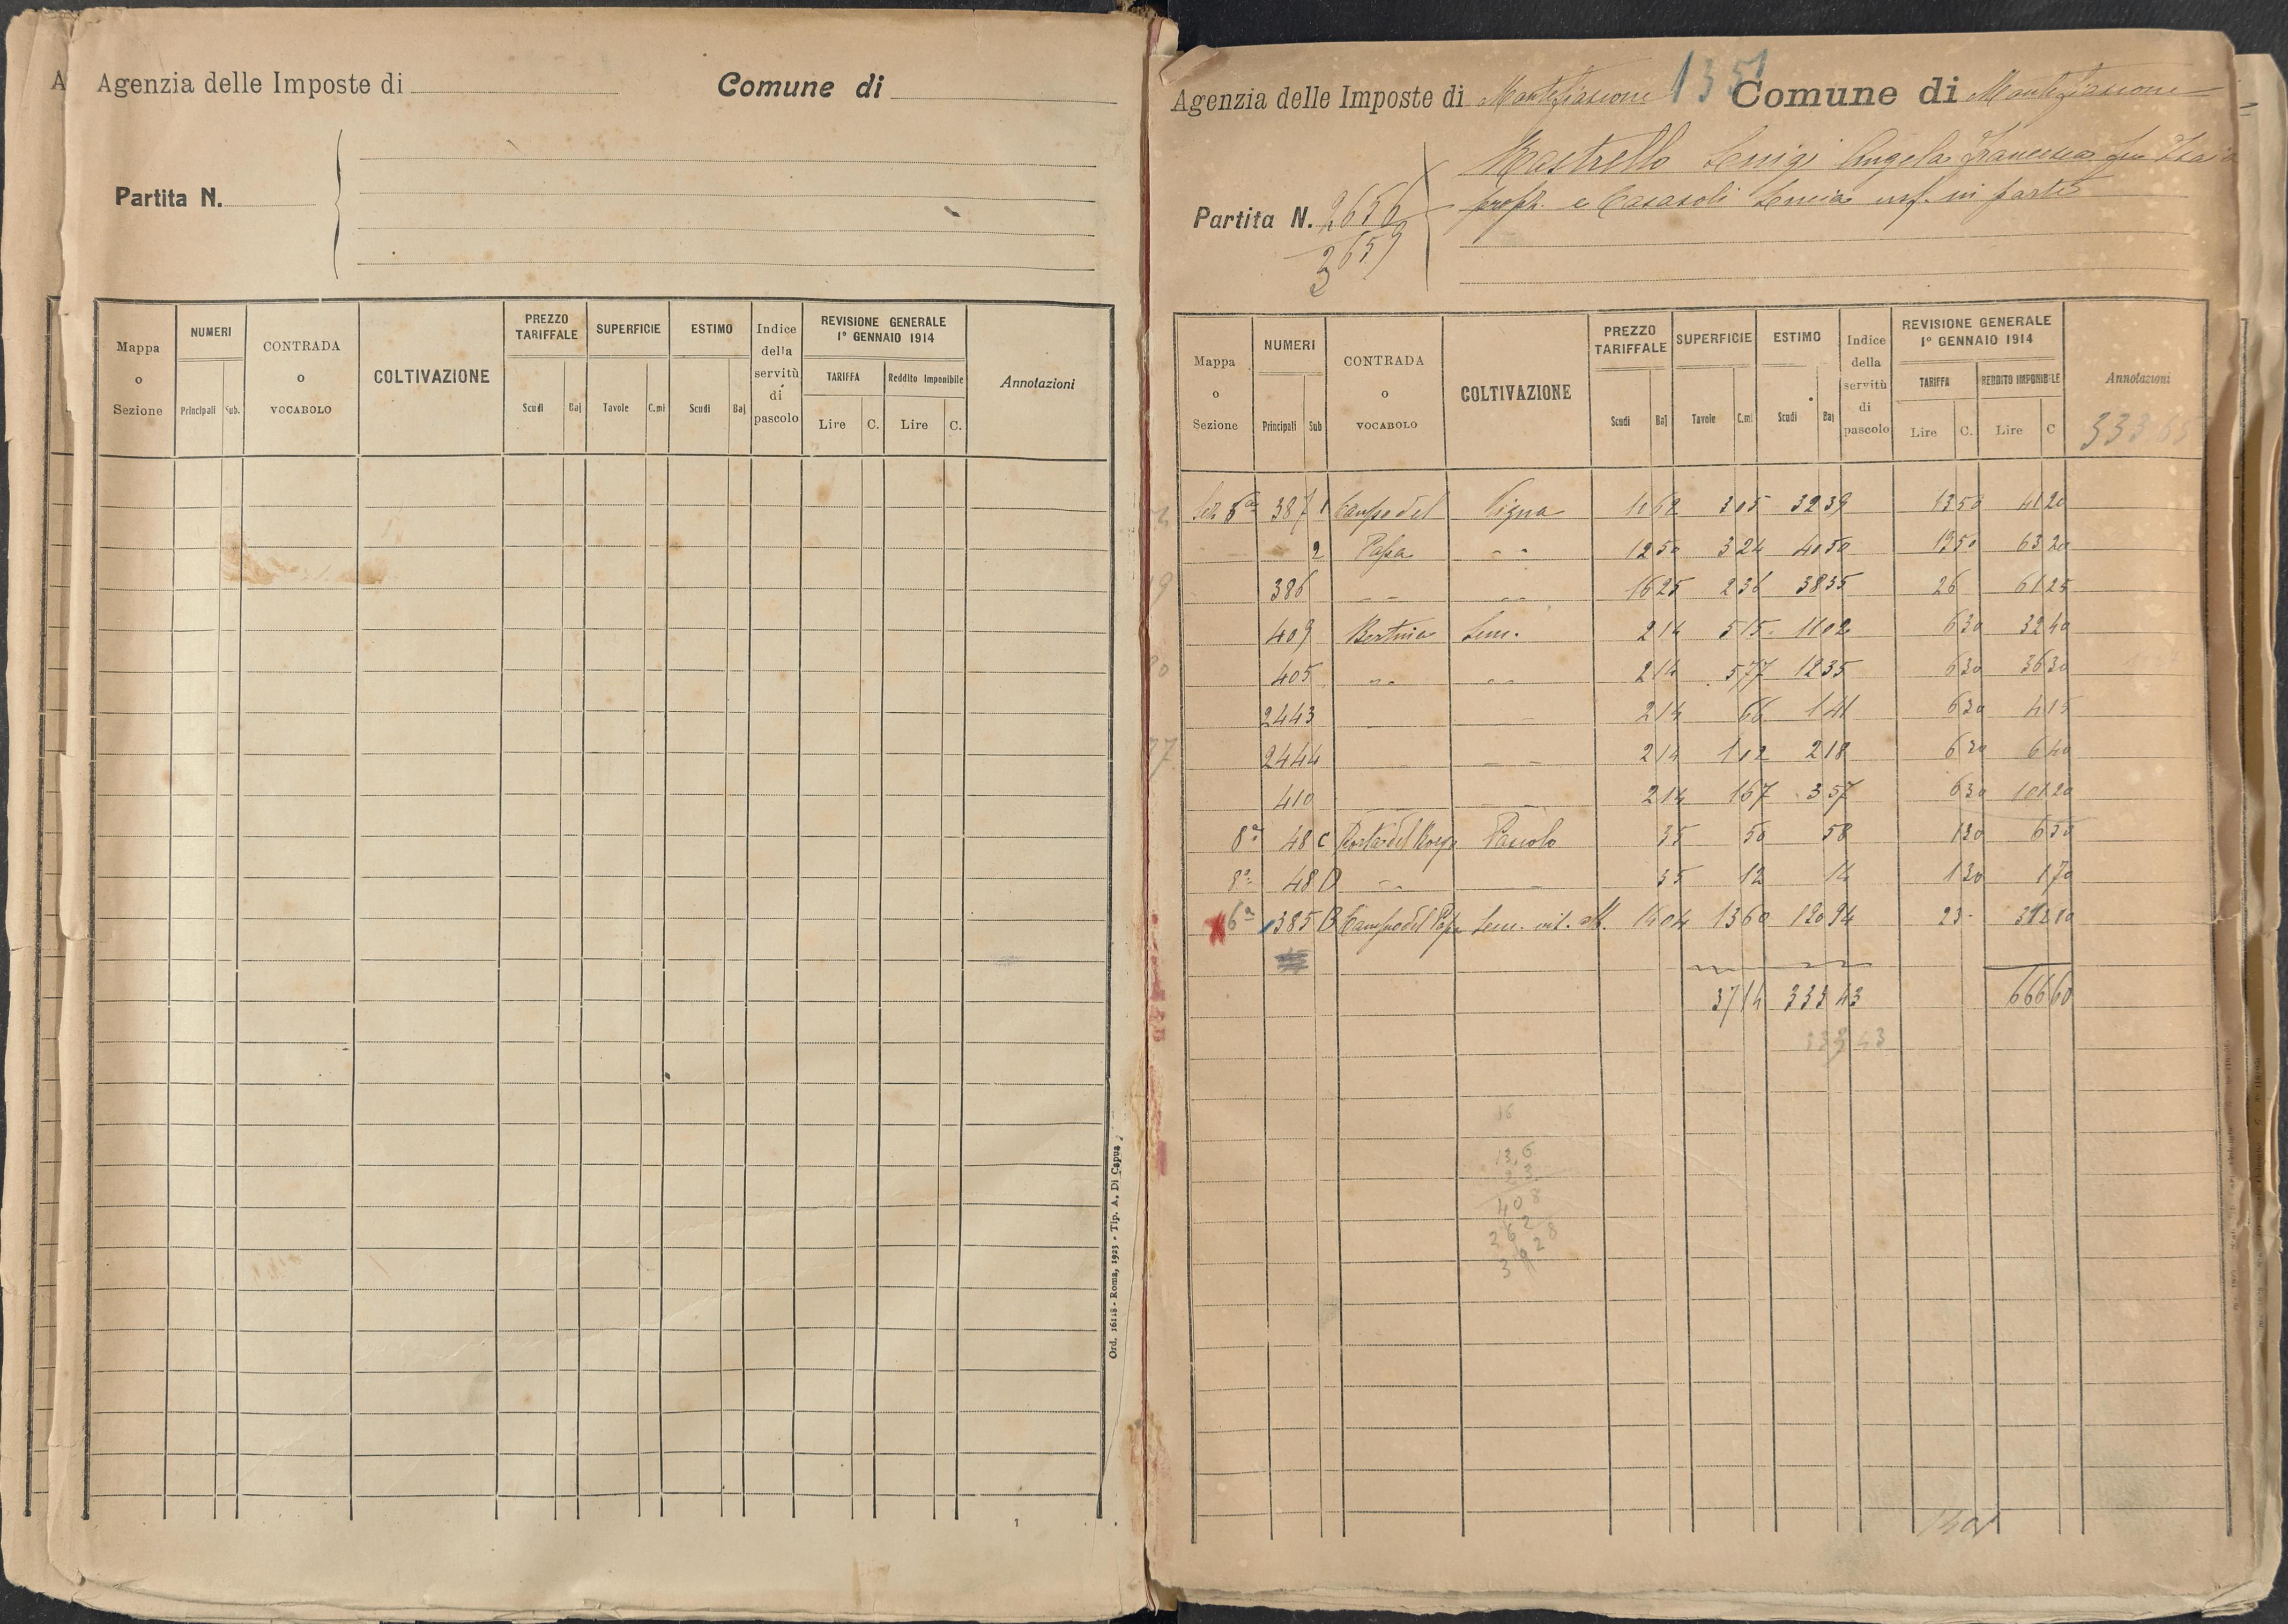 Agenzia delle Imposte di
Comune di
Partita N.
Mappa o Sezione
NUMERI
Principali Sub.
CONTRADA o VOCABOLO
COLTIVAZIONE
PREZZO TARIFFALE
Scudi Baj
SUPERFICIE
Tavole C.mi
ESTIMO
Scudi Baj
Indice della servitù di pascolo
REVISIONE GENERALE
1° GENNAIO 1914
TARIFFA
Lire C.
Reddito Imponibile
Lire C.
Annotazioni
Ord. 16118 - Roma, 1923 - Tip. A. Di Capua
1
Agenzia delle Imposte di Montefiascone 1351 Comune di Montefiascone
Partita N. 2656
3659
Luigi Angela Francesca fu Isaia
propr. e Casasoli Lucia usf. in parte
Mappa o Sezione
NUMERI
Principali Sub
CONTRADA o VOCABOLO
COLTIVAZIONE
PREZZO TARIFFALE
Scudi Baj
SUPERFICIE
Tavole C.mi
ESTIMO
Scudi Baj
Indice della servitù di pascolo
REVISIONE GENERALE
1° GENNAIO 1914
TARIFFA
Lire C.
REDDITO IMPONIBILE
Lire C
Annotazioni
333 65
Sez 6a 387 1 Campo del Vigna 10 62 3 05 32 39 13 50 41 20
2 Papa " " 12 50 3 24 40 50 19 50 63 20
386 " " 16 25 2 36 38 35 26 61 25
409 Sem. 2 14 5 15 11 02 6 30 32 40
405 " " 2 14 5 77 12 35 6 30 36 30
2443 2 14 66 1 41 6 30 4 15
2444 2 14 1 02 2 18 6 30 6 40
410 2 14 1 67 3 57 6 30 10 20
8a 48 C Pascolo 35 50 58 1 30 6 50
8a 48 D " 35 12 14 1 30 1 70
6a 385 B Campo del Papa Sem. vit. M. 14 04 13 60 120 94 23 -
37 14 333 43 666 60
333 43
16
13,6
23
408
262
3128